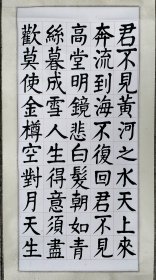 君不見黃河之水天上來
奔流到海不復回君不見
高堂明鏡悲白髮朝如青
絲暮成雪人生得意須盡
歡莫使金樽空對月天生